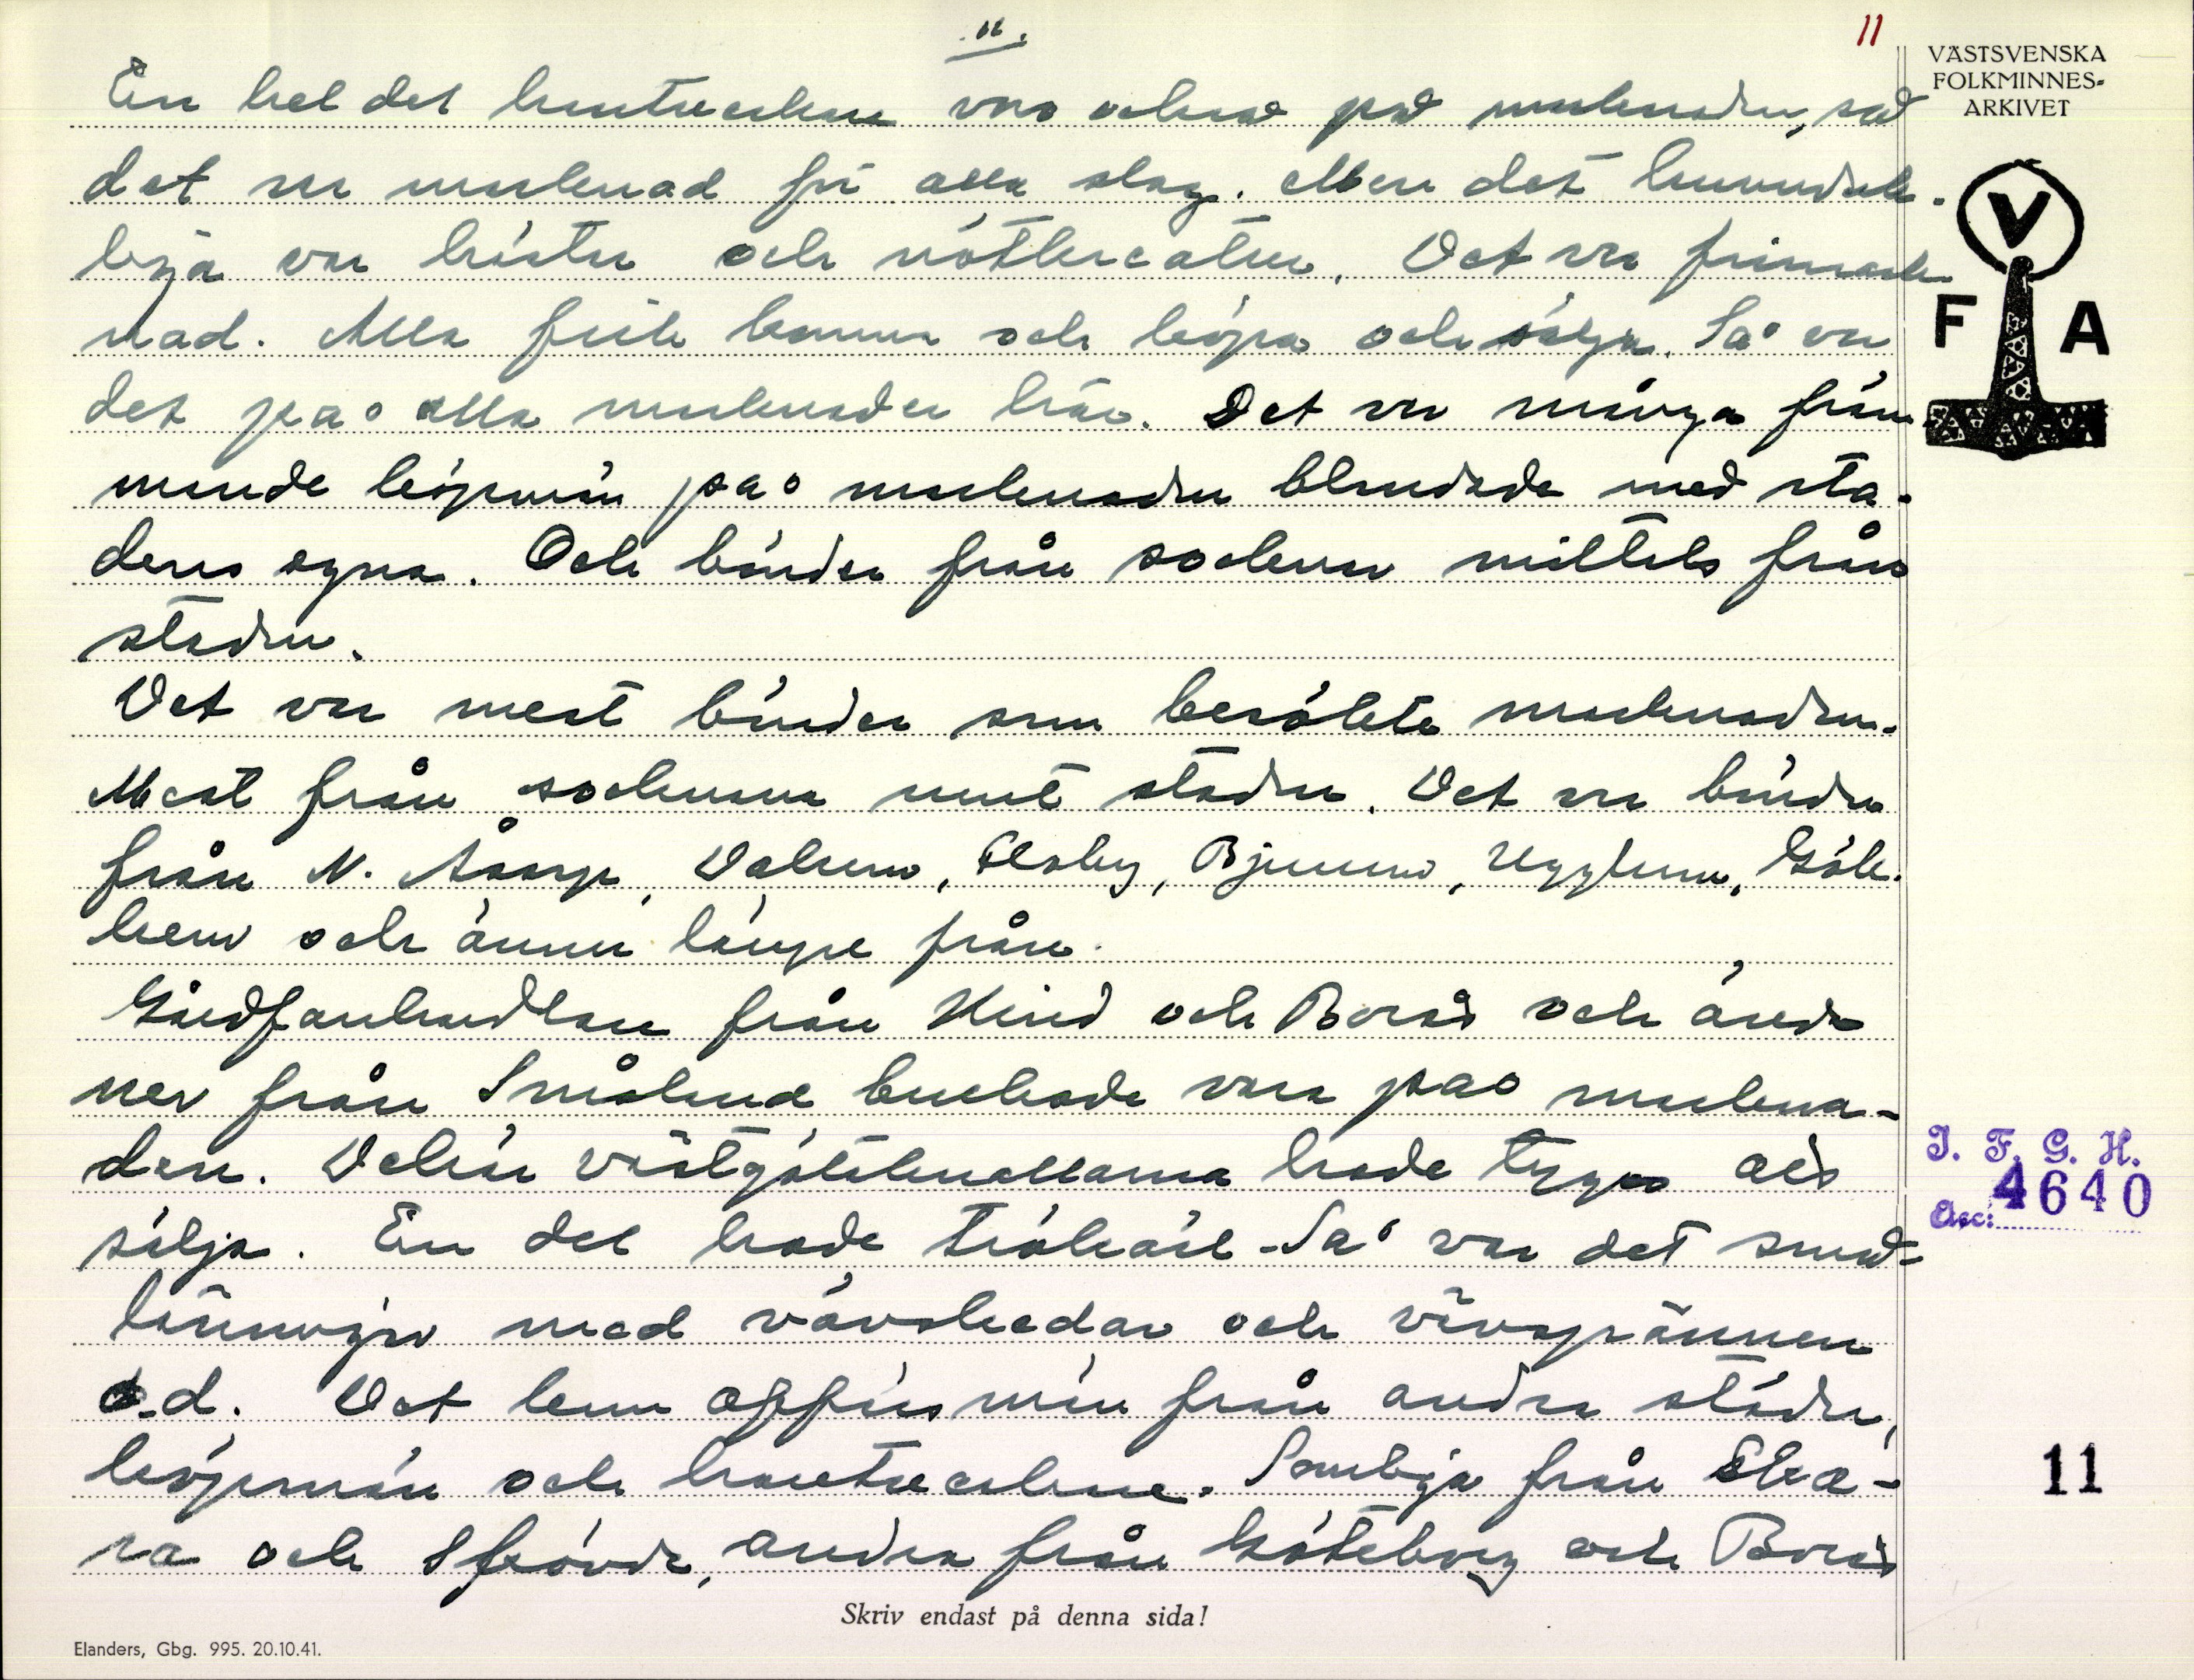 11.
11
VÄSTSVENSKA
FOLKMINNES-
ARKIVET
En hel del hantverkare var också på marknaden, så
det var marknad för alla slag. Men det huvudsak-
liga var hästar och nötkreatur. Det var frimark-
nad. Alla fick komma och köpa och sälja. Så var
det på alla marknader här. Det var många främ
mande köpmän på marknaden blandade med sta-
dens egna. Och bönder från socknar milltals från
staden.
Det var mest bönder som besökte marknaden.
Mest från socknarna runt staden. Det var bönder
från N. Åsarp, Valum, Floby, Bjurum, Ugglum, Göke-
hem och ännu längre från.
Gårdfarihandlare från Kind och Borås och ända
ner från Småland brukade vara på markna-
den. Dehär västgötaknallarna hade tyger att
sälja. En del hade träkärl. Så var det små-
länningar med vävskedar och vävspännen
o.d. Det kom affärsmän från andra städer,
köpmän och hantverkare. Somliga från Ska-
ra och Skövde, andra från Göteborg och Borås
V
F A
I. F. G. H.
Acc: 4640
11
Skriv endast på denna sida!
Elanders, Gbg. 995. 20.10.41.